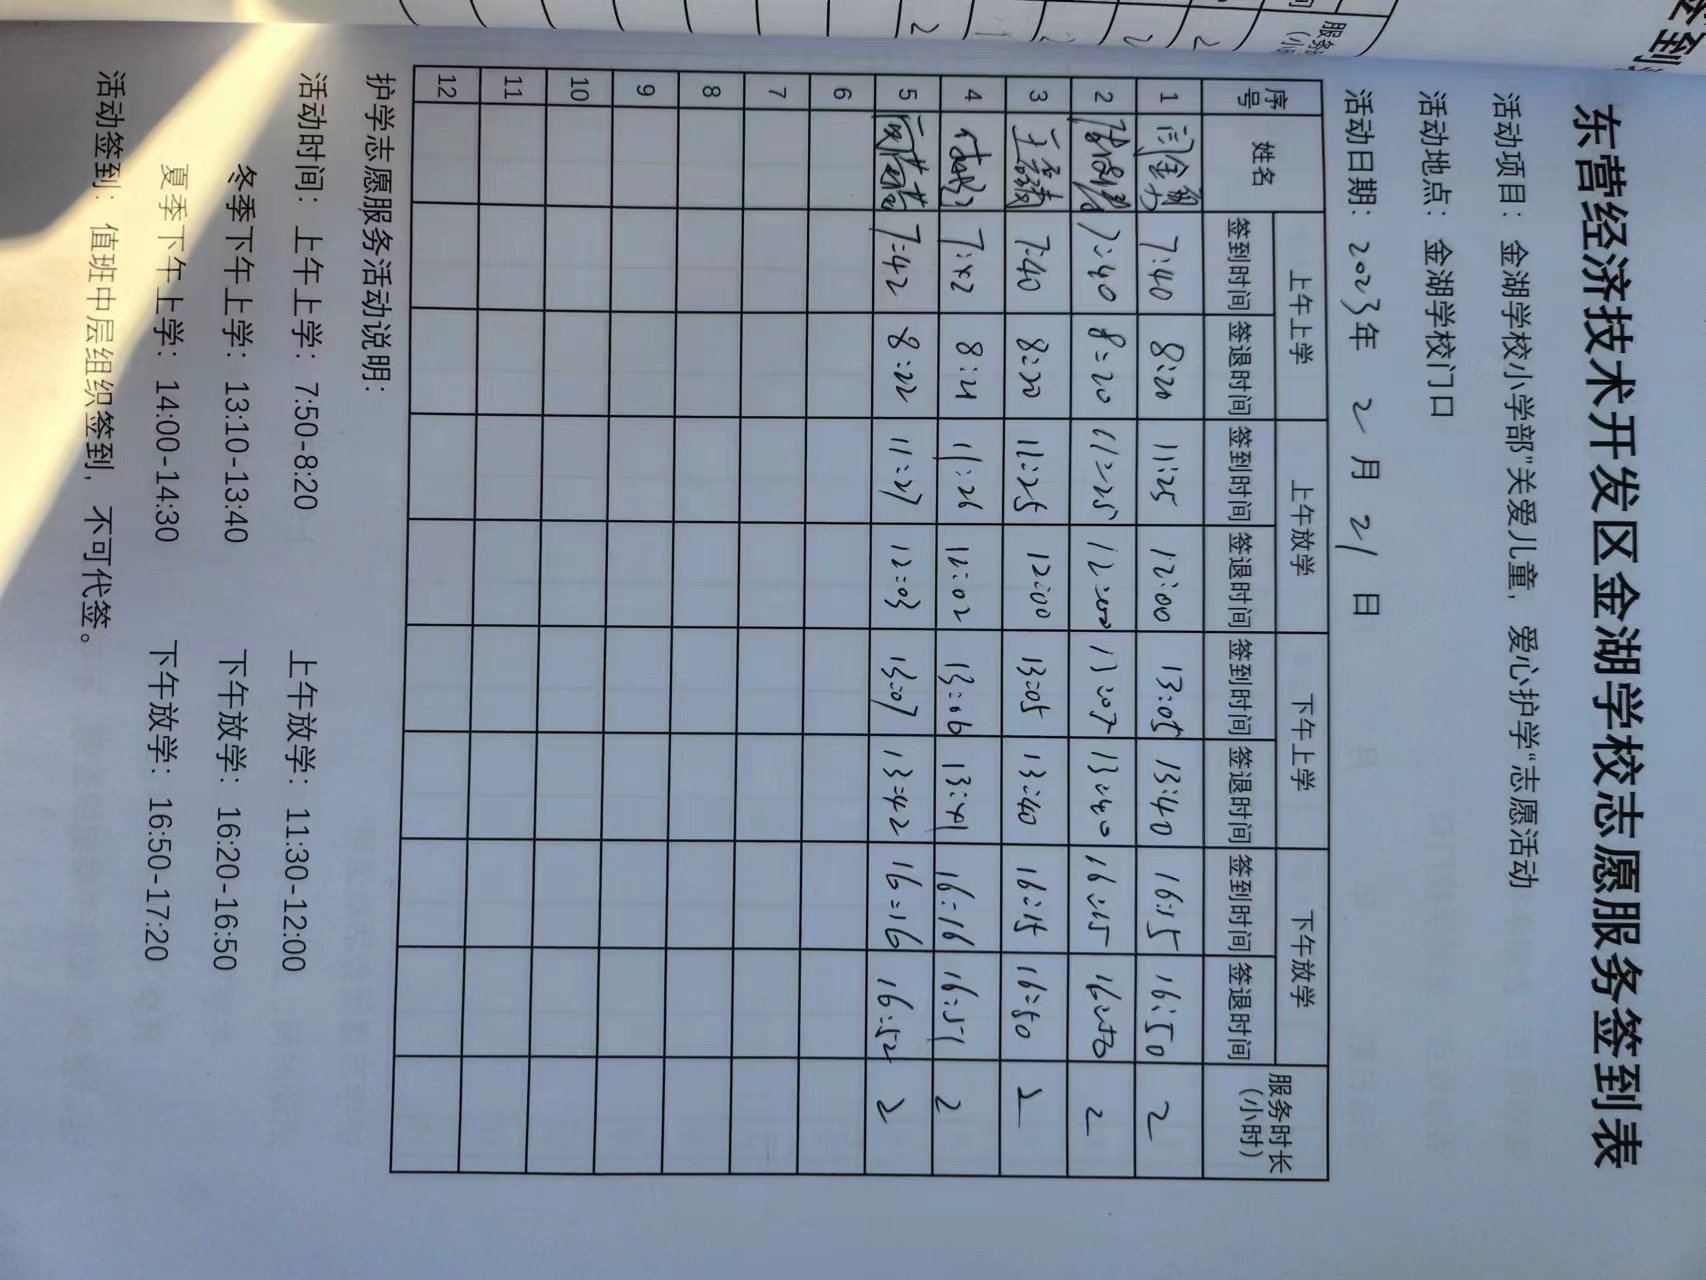 东营经济技术开发区金湖学校志愿服务签到表
活动项目：金湖学校小学部"关爱儿童，爱心护学"志愿活动
活动地点：金湖学校门口
活动日期：2023年 2 月 21 日
序号 姓名 上午上学 上午放学 下午上学 下午放学 服务时长（小时）
签到时间 签退时间 签到时间 签退时间 签到时间 签退时间 签到时间 签退时间
1 7:40 8:20 11:25 12:00 13:05 13:40 16:15 16:50 2
2 7:40 8:20 11:25 12:00 13:07 13:40 16:15 16:50 2
3 7:40 8:20 11:25 12:00 13:05 13:40 16:15 16:50 2
4 7:42 8:21 11:26 12:02 13:06 13:41 16:16 16:51 2
5 7:42 8:22 11:27 12:03 13:07 13:42 16:16 16:52 2
6
7
8
9
10
11
12
护学志愿服务活动说明：
活动时间：上午上学：7:50-8:20 上午放学：11:30-12:00
冬季下午上学：13:10-13:40 下午放学：16:20-16:50
夏季下午上学：14:00-14:30 下午放学：16:50-17:20
活动签到：值班中层组织签到，不可代签。